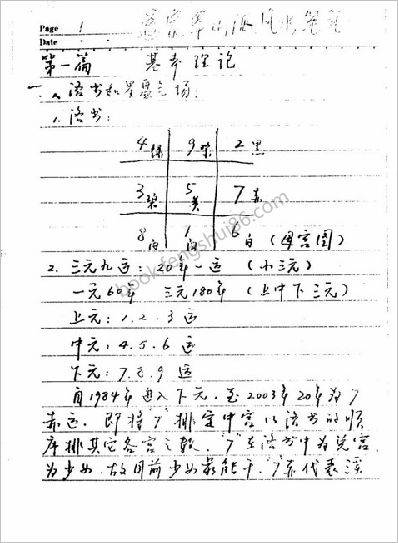 Page 1
Date
第一篇 基本理论
一、洛书和星盘气场
1、洛书：
4绿 9紫 2黑
3碧 5黄 7赤
8白 1白 6白 (母宫图)
2、三元九运：20年一运 (小三元)
一元60年 三元180年 (上中下三元)
上元：1、2、3运
中元：4、5、6运
下元：7、8、9运
自1984年进入下元，至2003年20年为7
赤运。即将7排定中宫以洛书的顺
序排其它各宫之数。7在洛书中为兑宫
为少女，故目前少女最能干，7赤代表
book.fengshui86.com